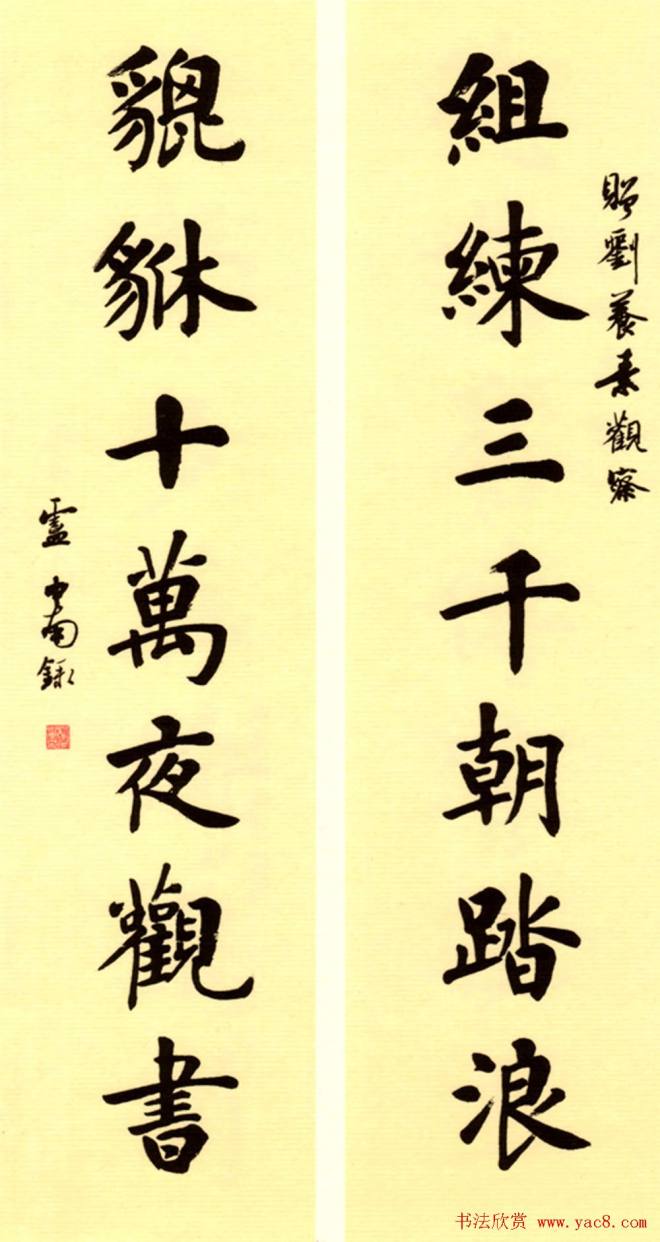 贈劉養素觀察
組練三千朝踏浪
貔貅十萬夜觀書
盧中南錄
书法欣赏 www.yac8.com